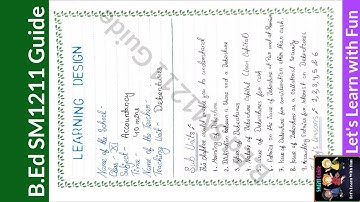 B.Ed SM1211 Guide
LEARNING DESIGN
Name of the School:-
Class: XI
Subject: Accountancy
Time: 40 mins
Name of the Teacher:-
Teaching Unit: Debentures
Sub Units:-
This chapter would enable you to understand
1. Meaning of Debenture
2. Distinction between a Share and a Debenture
3. Types of Debentures
4. Nature of Debenture Capital (Loan Capital)
5. Issue of Debentures for cash
6. Entries on the Issue of Debentures at Par and at Premium
7. Issue of Debentures for consideration other than cash
8. Issue of Debentures as a Collateral Security
9. Accounting Entries for Interest on Debentures
1, 2, 3, 4, 5 & 6
B.Ed SM1211 Guide
Let's Learn with Fun